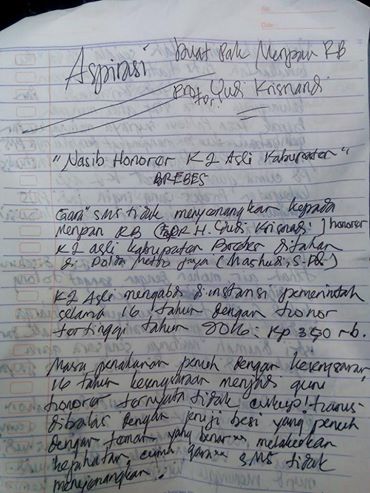 Aspirasi buat Pak Menpan RB
Prof. Yudi Krisnandi
"Nasib Honorer K2 Asli Kabupaten"
BREBES
Gara" SMS tidak menyenangkan kepada
Menpan RB ( H. Yudi Krisnandi ) honorer
K2 asli kabupaten Brebes ditahan
di Polda Metro Jaya (Mashudi, S.Pd.)
K2 Asli mengabdi di instansi pemerintah
selama 16 tahun dengan honor
tertinggi tahun 2016: Rp 350 rb.
Masa penahanan penuh dengan kesengsaraan,
16 tahun kesengsaraan menjadi guru
honorer ternyata tidak cukup! harus
dibalas dengan jeruji besi yang penuh
dengan teman yang benar" melakukan
kejahatan, cuma gara" SMS tidak
menyenangkan.